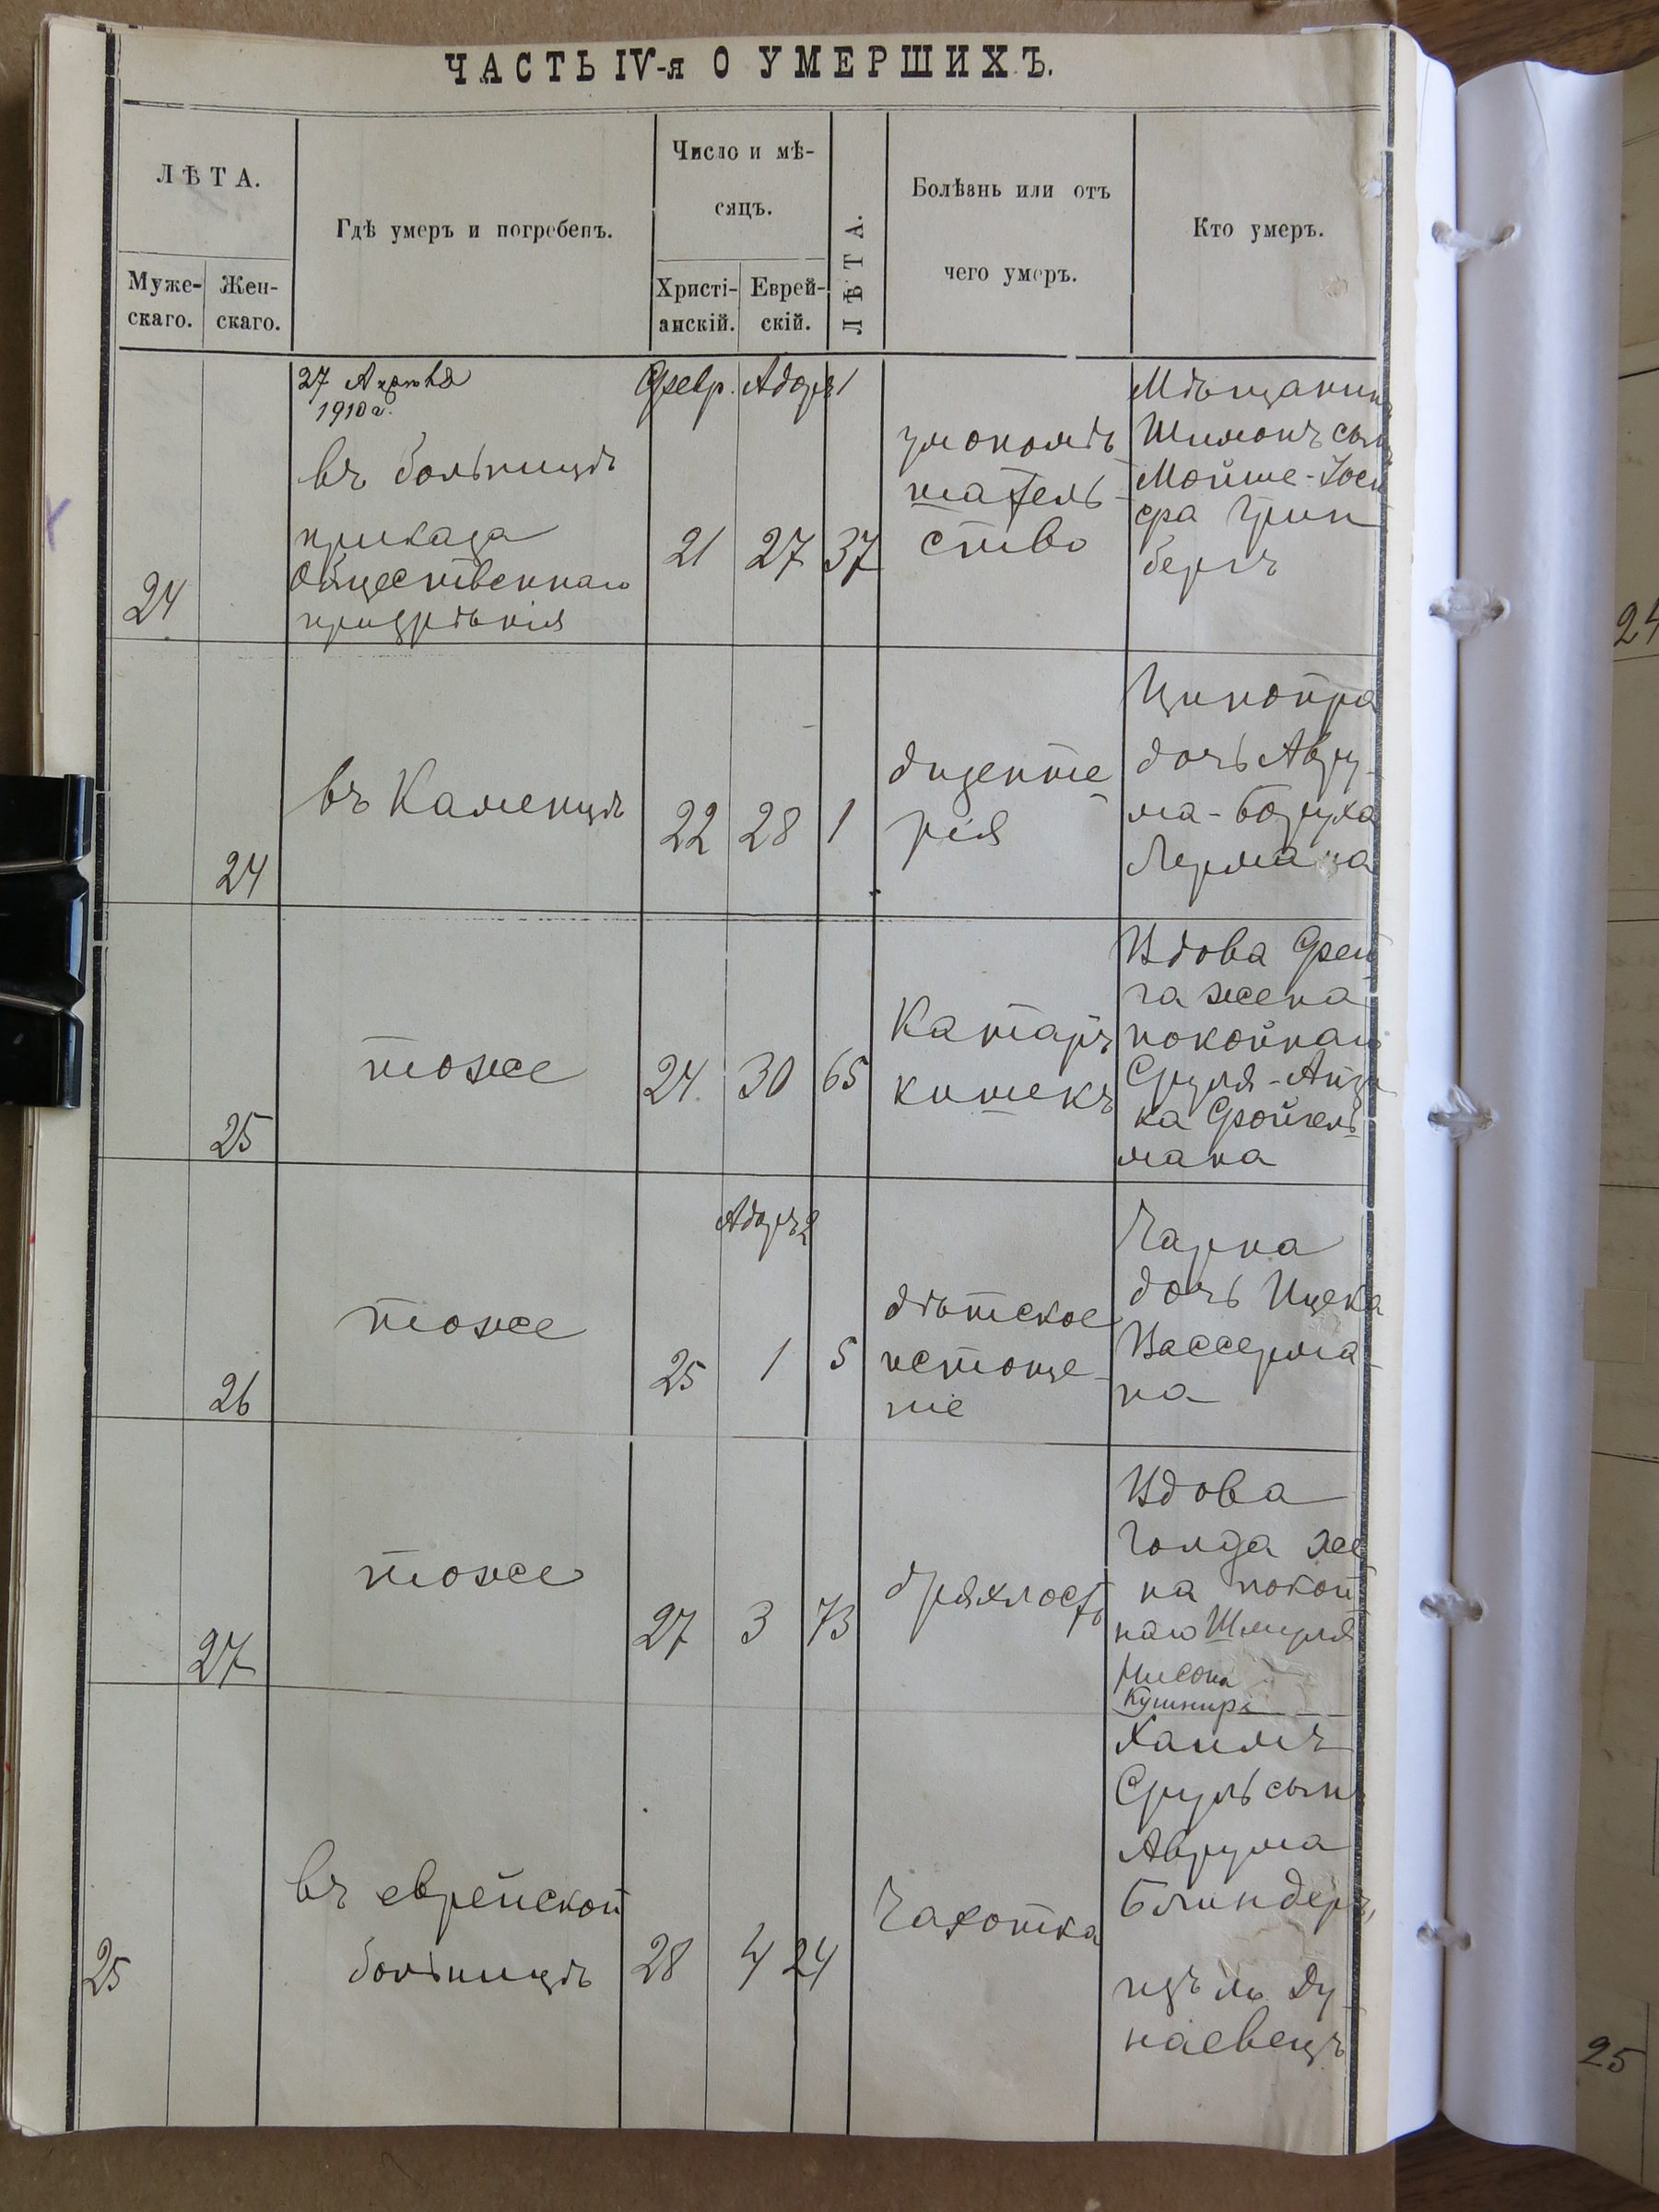 ЧАСТЬ IV-я О УМЕРШИХЪ.
ЛѢТА.
Муже-
скаго.
Жен-
скаго.
Гдѣ умеръ и погребенъ.
Число и мѣ-
сяцъ.
Христі-
анскій.
Еврей-
скій.
ЛѢТА.
Болѣзнь или отъ
чего умеръ.
Кто умеръ.
27
1910 г.
въ больницѣ
приказа
общественнаго
призрѣнія
24
Февр.
21
Адаръ 1
27
37
умопомѣ
шатель-
ство
Мѣщанинъ
Шимонъ сынъ
Мойше-Іоси
фа Грин
бергъ
24
въ Каменцѣ
22
28
1
дизенте
рія
Ципойра
дочь Авру-
ма-Боруха
Лермана
25
тоже
24
30
65
Катаръ
кишекъ
Вдова Фей
га жена
покойнаго
Сруля-Айзи
ка Фойгель
мана
26
тоже
25
Адаръ 2
1
5
дѣтское
истоще-
ніе
Чарна
дочь Ицека
Вассерма-
на
27
тоже
27
3
73
дряхлость
Вдова
Голда же
на покой
наго Шмуля
Нисона
Кушнира
25
въ еврейской
больницѣ
28
4
24
Чахотка
Хаимъ
Сруль сын
Аврума
Блиндеръ,
изъ м. Ду-
наевецъ
24
25